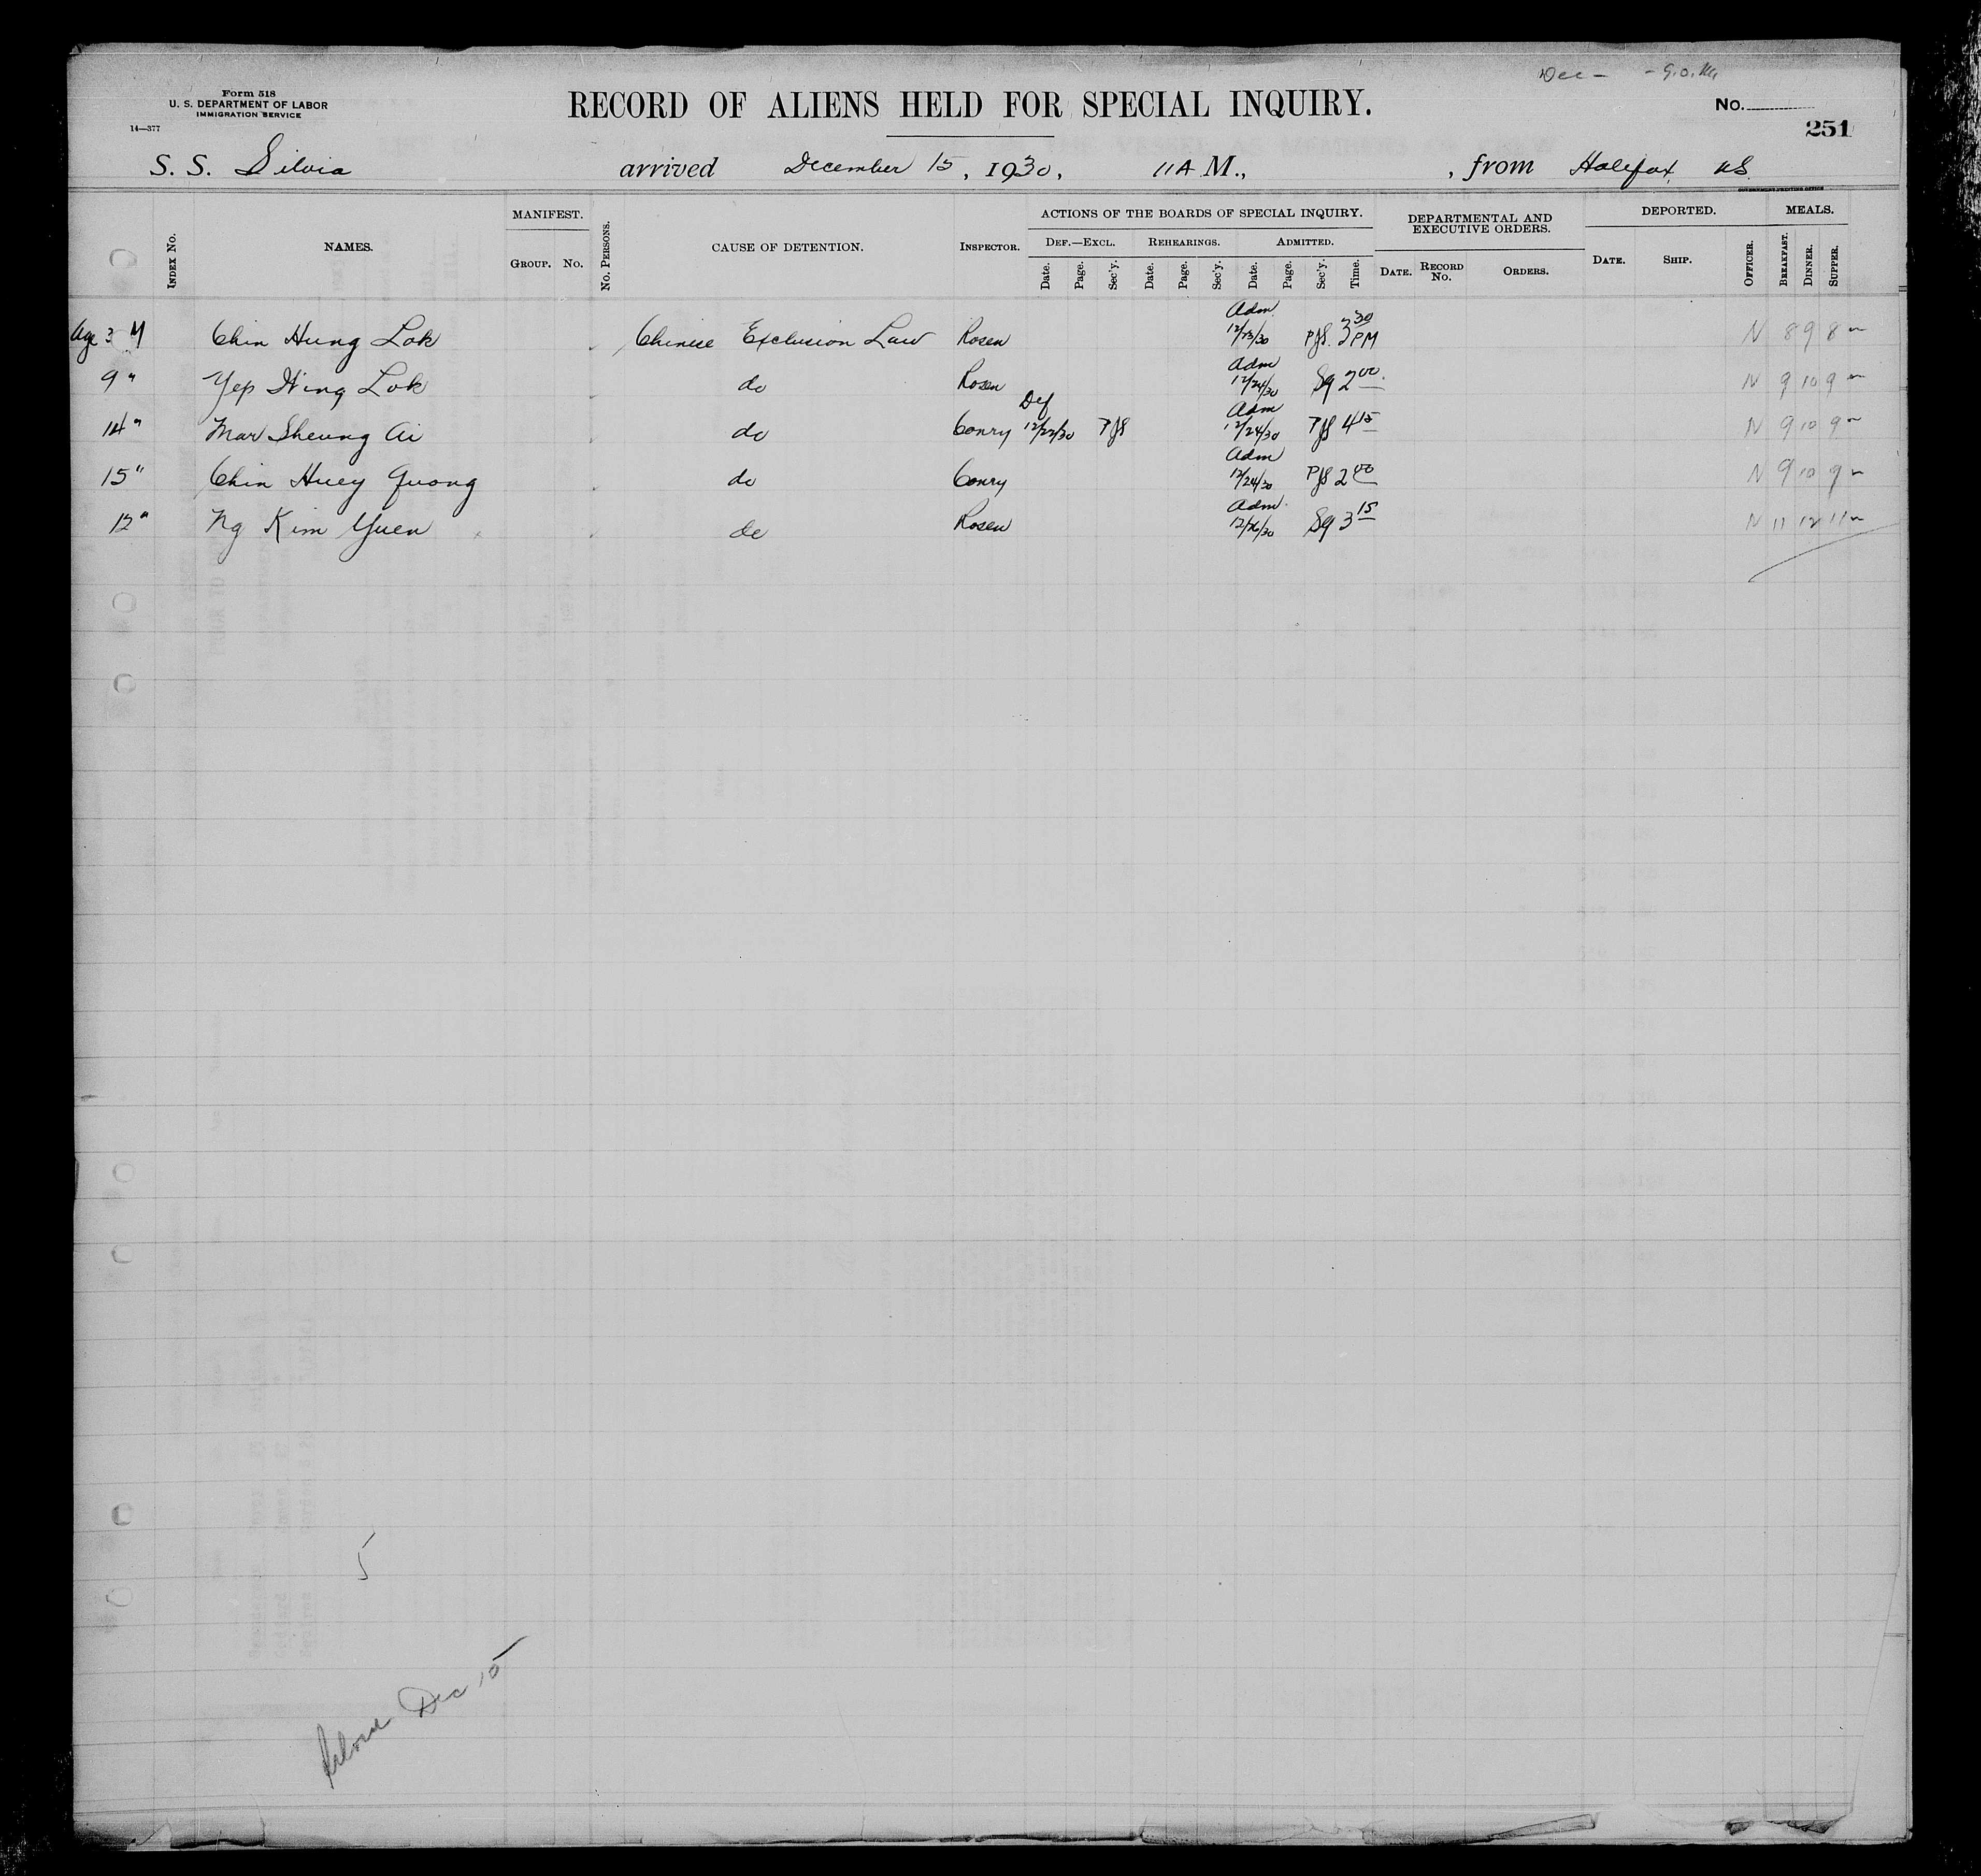 Dec - - G.O.
Form 518
U. S. DEPARTMENT OF LABOR
IMMIGRATION SERVICE
14—377
RECORD OF ALIENS HELD FOR SPECIAL INQUIRY.
No.
251
S. S. Silvia arrived December 15, 1930, 11 A M., , from Halifax, NS
GOVERNMENT PRINTING OFFICE
INDEX No. NAMES. MANIFEST. GROUP. No. No. PERSONS. CAUSE OF DETENTION. INSPECTOR. ACTIONS OF THE BOARDS OF SPECIAL INQUIRY. DEF.—EXCL. Date. Page. Sec'y. REHEARINGS. Date. Page. Sec'y. ADMITTED. Date. Page. Sec'y. Time. DEPARTMENTAL AND EXECUTIVE ORDERS. DATE. RECORD No. ORDERS. DEPORTED. DATE. SHIP. OFFICER. MEALS. BREAKFAST. DINNER. SUPPER.
Age 3 M Chin Hung Lok Chinese Exclusion Law Rosen Adm 12/23/30 PJS 3 30 PM N 8 9 8
9 " Yep Wing Lok do Rosen Adm 12/24/30 Sg 2 00 N 9 10 9
14 " Mar Sheung Ai do Conry Def 12/22/30 PJS Adm 12/24/30 PJS 4 15 N 9 10 9
15 " Chin Huey Quong do Conry Adm 12/24/30 PJS 2 00 N 9 10 9
12 " Ng Kim Yuen do Rosen Adm 12/26/30 Sg 3 15 N 11 12 11
5
Silvia Dec 15